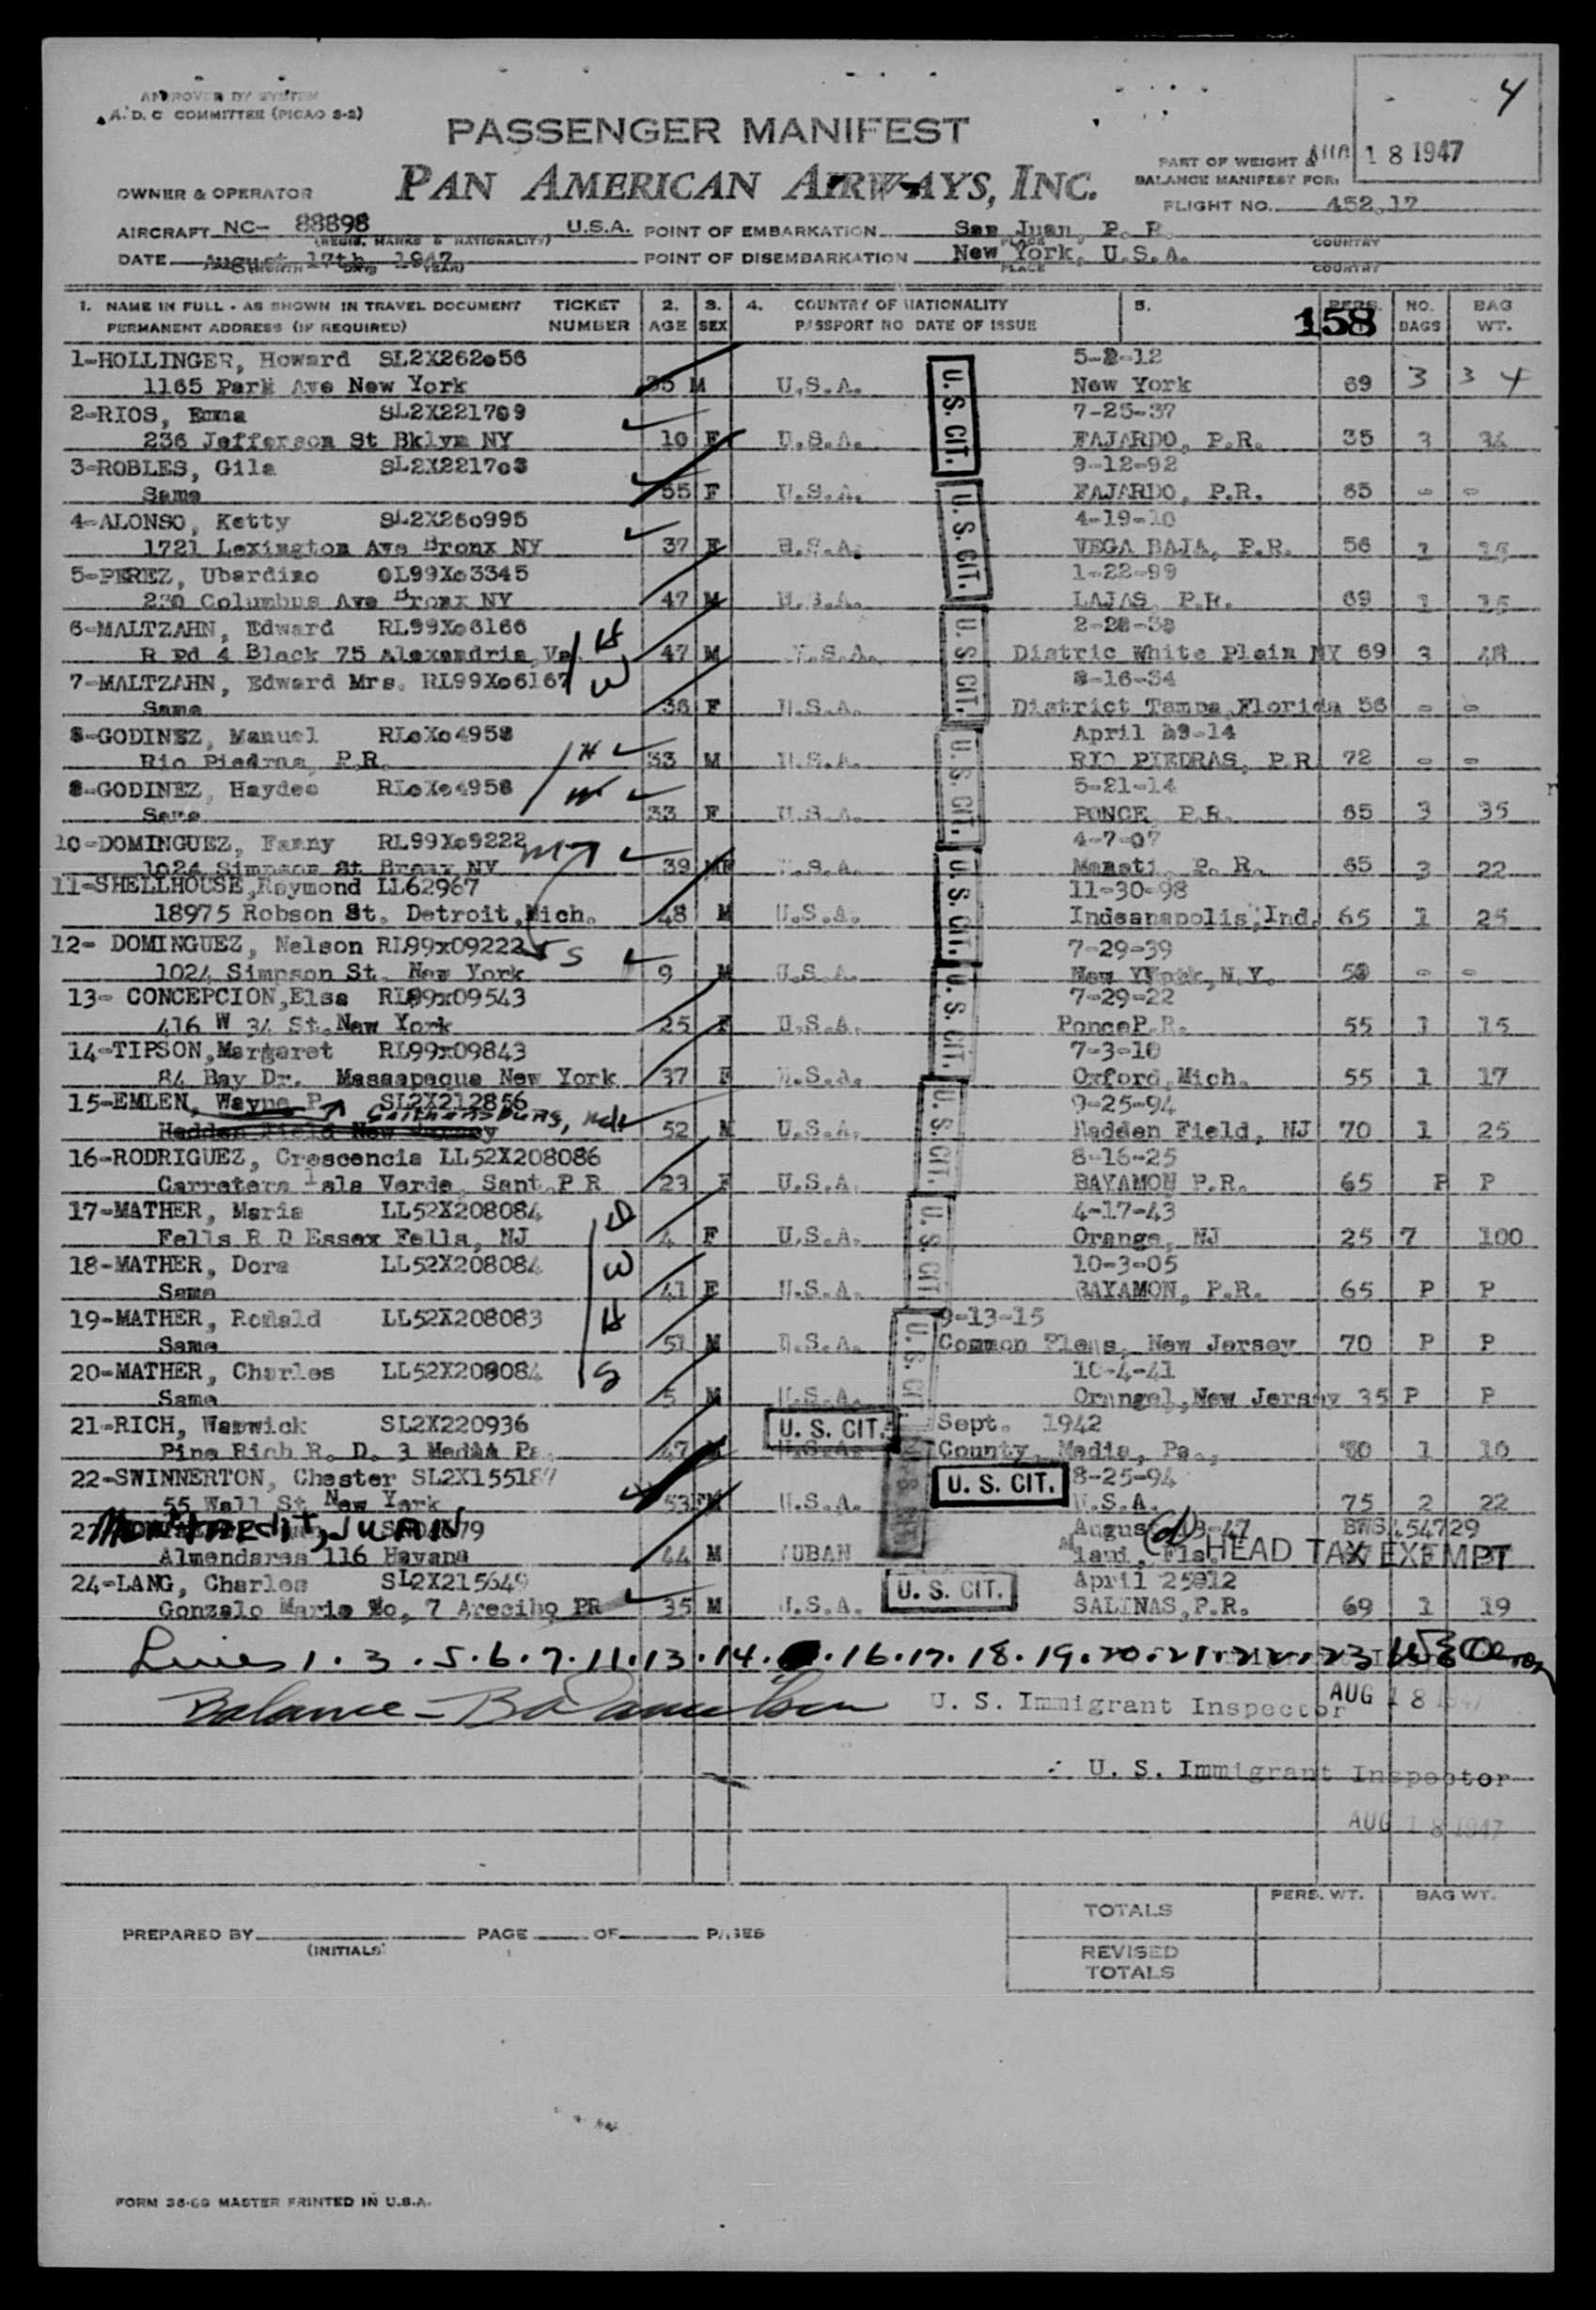 APPROVED BY SYSTEM
A. D. C COMMITTEE (PICAO S-2)
4
PASSENGER MANIFEST
PART OF WEIGHT &
AUG 18 1947
BALANCE MANIFEST FOR:
OWNER & OPERATOR
PAN AMERICAN AIRWAYS, INC.
FLIGHT NO. 452.17
AIRCRAFT NC- 88898 U.S.A. POINT OF EMBARKATION San Juan, P. R.
(REGIS. MARKS & NATIONALITY) PLACE COUNTRY
DATE August 17th 1947 POINT OF DISEMBARKATION New York, U.S.A.
(MONTH DAY YEAR) PLACE COUNTRY
1. NAME IN FULL - AS SHOWN IN TRAVEL DOCUMENT TICKET 2. 3. 4. COUNTRY OF NATIONALITY 5. PERS. NO. BAG
PERMANENT ADDRESS (IF REQUIRED) NUMBER AGE SEX PASSPORT NO DATE OF ISSUE 158 BAGS WT.
1-HOLLINGER, Howard SL2X262o56 5-2-12
1165 Park Ave New York 35 M U.S.A. U.S. CIT. New York 69 3 34
2-RIOS, Emma SL2X221709 7-25-37
236 Jefferson St Bklyn NY 10 F U.S.A. FAJARDO, P.R. 35 3 34
3-ROBLES, Gila SL2X221703 9-12-92
Same 55 F U.S.A. FAJARDO, P.R. 65 - -
4-ALONSO, Ketty SL2X26o995 U.S. CIT. 4-19-10
1721 Lexington Ave Bronx NY 37 F U.S.A. VEGA BAJA, P.R. 56 1 15
5-PEREZ, Ubardino OL99Xo3345 1-22-99
230 Columbus Ave Bronx NY 47 M U.S.A. LAJAS P.R. 69 1 15
6-MALTZAHN, Edward RL99Xo6166 H U. S CIT.
R Rd 4 Block 75 Alexandria, Va. 47 M U.S.A. Distric White Plain NY 69 3 48
7-MALTZAHN, Edward Mrs. RL99Xo6167 W 8-16-34
Same 36 F U.S.A. District Tampa, Florida 56 - -
8-GODINEZ, Manuel RLoXo4958 H April 29-14
Rio Piedras, P.R. 33 M U.S.A. U. S. CIT. RIO PIEDRAS, P.R. 72 - -
8-GODINEZ, Haydee RLoXo4958 W 5-21-14
Same 33 F U.S.A. PONCE, P.R. 65 3 35
10-DOMINGUEZ, Fanny RL99Xo9222 M 4-7-07
1024 Simpson St Bronx NY 39 MF U.S.A. U. S. CIT. Manati, P. R. 65 3 22
11-SHELLHOUSE, Raymond LL62967 11-30-98
18975 Robson St. Detroit, Mich. 48 M U.S.A. Indeanapolis, Ind. 65 1 25
12- DOMINGUEZ, Nelson RL99x09222 S 7-29-39
1024 Simpson St. New York 9 M U.S.A. U. S. CIT. New York, N.Y. 50 - -
13- CONCEPCION, Elsa RL99x09543 7-29-22
416 W 34 St. New York 25 F U.S.A. Ponce P.R. 55 1 15
14-TIPSON, Margaret RL99x09843 7-3-10
84 Bay Dr. Massapequa New York 37 F U.S.A. Oxford, Mich. 55 1 17
15-EMLEN, Wayne P. SL2X212856 U. S. CIT. 9-25-94
Hadden Field New Jersey 52 M U.S.A. Hadden Field, NJ 70 1 25
16-RODRIGUEZ, Crescencia LL52X208086 8-16-25
Carretera Isla Verde, Sant. P R 23 F U.S.A. BAYAMON P.R. 65 P P
17-MATHER, Maria LL52X208084 D U. S. CIT 4-17-43
Fells R D Essex Fells, NJ 4 F U.S.A. Orange, NJ 25 7 100
18-MATHER, Dora LL52X208084 W 10-3-05
Same 41 F U.S.A. BAYAMON, P.R. 65 P P
19-MATHER, Ronald LL52X208083 H U. S. CIT. 9-13-15
Same 51 M U.S.A. Common Pleas, New Jersey 70 P P
20-MATHER, Charles LL52X208084 S 10-4-41
Same 5 M U.S.A. Orangel, New Jersey 35 P P
21-RICH, Warwick SL2X220936 U. S. CIT. Sept. 1942
Pine Rich R. D. 3 Media Pa. 47 M U.S.A. County, Media, Pa., 1 10
22-SWINNERTON, Chester SL2X155187 U. S. CIT. 8-25-94
55 Wall St New York 53 FM U.S.A. U.S.A. 75 2 22
JUAN August 13-47 BWS 454729
Almendares 116 Havana 44 M CUBAN Miami, Fla. (d) HEAD TAX EXEMPT
24-LANG, Charles SL2X215649 U. S. CIT. April 25 912
Gonzalo Marin No, 7 Arecibo PR 35 M U.S.A. SALINAS, P.R. 69 1 19
Lines 1. 3. 5. 6. 7. 11. 13. 14. 16. 17. 18. 19. 20. 21. 22. 23
Balance - U. S. Immigrant Inspector AUG 18 1947
U. S. Immigrant Inspector
AUG 18 1947
PERS. WT. BAG WT.
TOTALS
PREPARED BY PAGE OF PAGES
(INITIALS)
REVISED
TOTALS
FORM 36-69 MASTER PRINTED IN U.S.A.